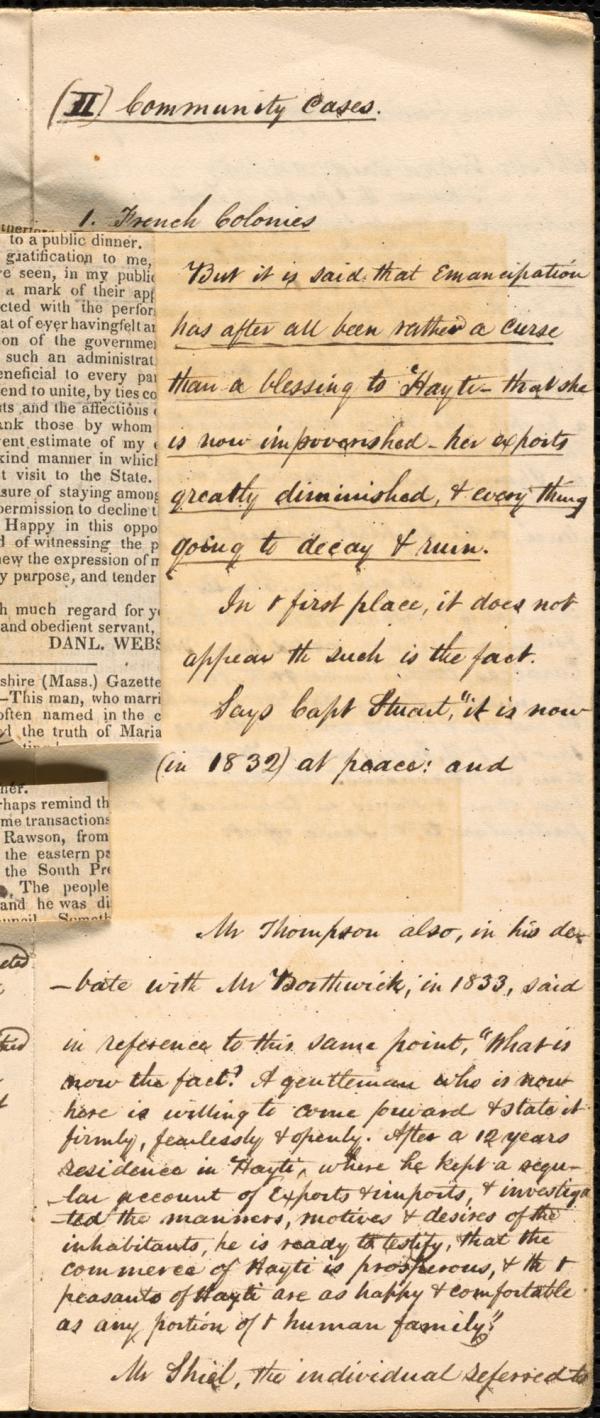 (II) Community Cases.
1. French Colonies
to a public dinner.
gratification to me,
re seen, in my public
a mark of their
cted with the
at of ever having felt
on of the
such an administrat
eneficial to every
end to unite, by ties
ts and the affections
ank those by whom
ent estimate of my
kind manner in which
t visit to the State.
sure of staying among
permission to decline
Happy in this
d of witnessing the
new the expression of
y purpose, and tender
h much regard for
and obedient servant,
DANL. WEBS
shire (Mass.) Gazette
—This man, who marri
often named in the
the truth of Maria
ner.
rhaps remind
me transactions
Rawson, from
the eastern
the South
The people
and he was
But it is said that Emancipation
has after all been rather a curse
than a blessing to Hayti – that she
is now impoverished – her exports
greatly diminished, & every thing
going to decay & ruin.
In t first place, it does not
appear th such is the fact.
Says Capt Stuart, "it is now
(in 1832) at peace: and
Mr Thompson also, in his de-
-bate with Mr Borthwick, in 1833, said
in reference to this same point, "What is
now the fact? A gentleman who is now
here is willing to come forward & state it
firmly, fearlessly & openly. After a 12 years
residence in Hayti, where he kept a regu-
-lar account of exports & imports, & investiga
-ted the manners, motives & desires of the
inhabitants, he is ready to testify, that the
commerce of Hayti is prosperous, & th t
peasants of Hayti are as happy & comfortable
as any portion of t human family."
Mr Shiel, the individual referred to